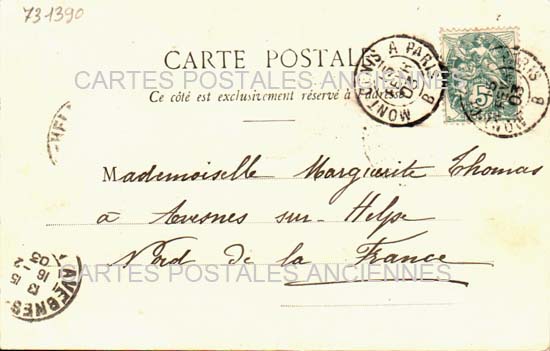 73-1390
CARTE POSTALE
CARTES POSTALES ANCIENNES
Ce côté est exclusivement réservé à l'adresse
MONT A PARIS B
5
PARIS B
03
Mademoiselle Marguerite Thomas
a Avesnes sur-Helpe
Nord de la France
CARTES POSTALES ANCIENNES
AVESNES
13-15
16-2
03